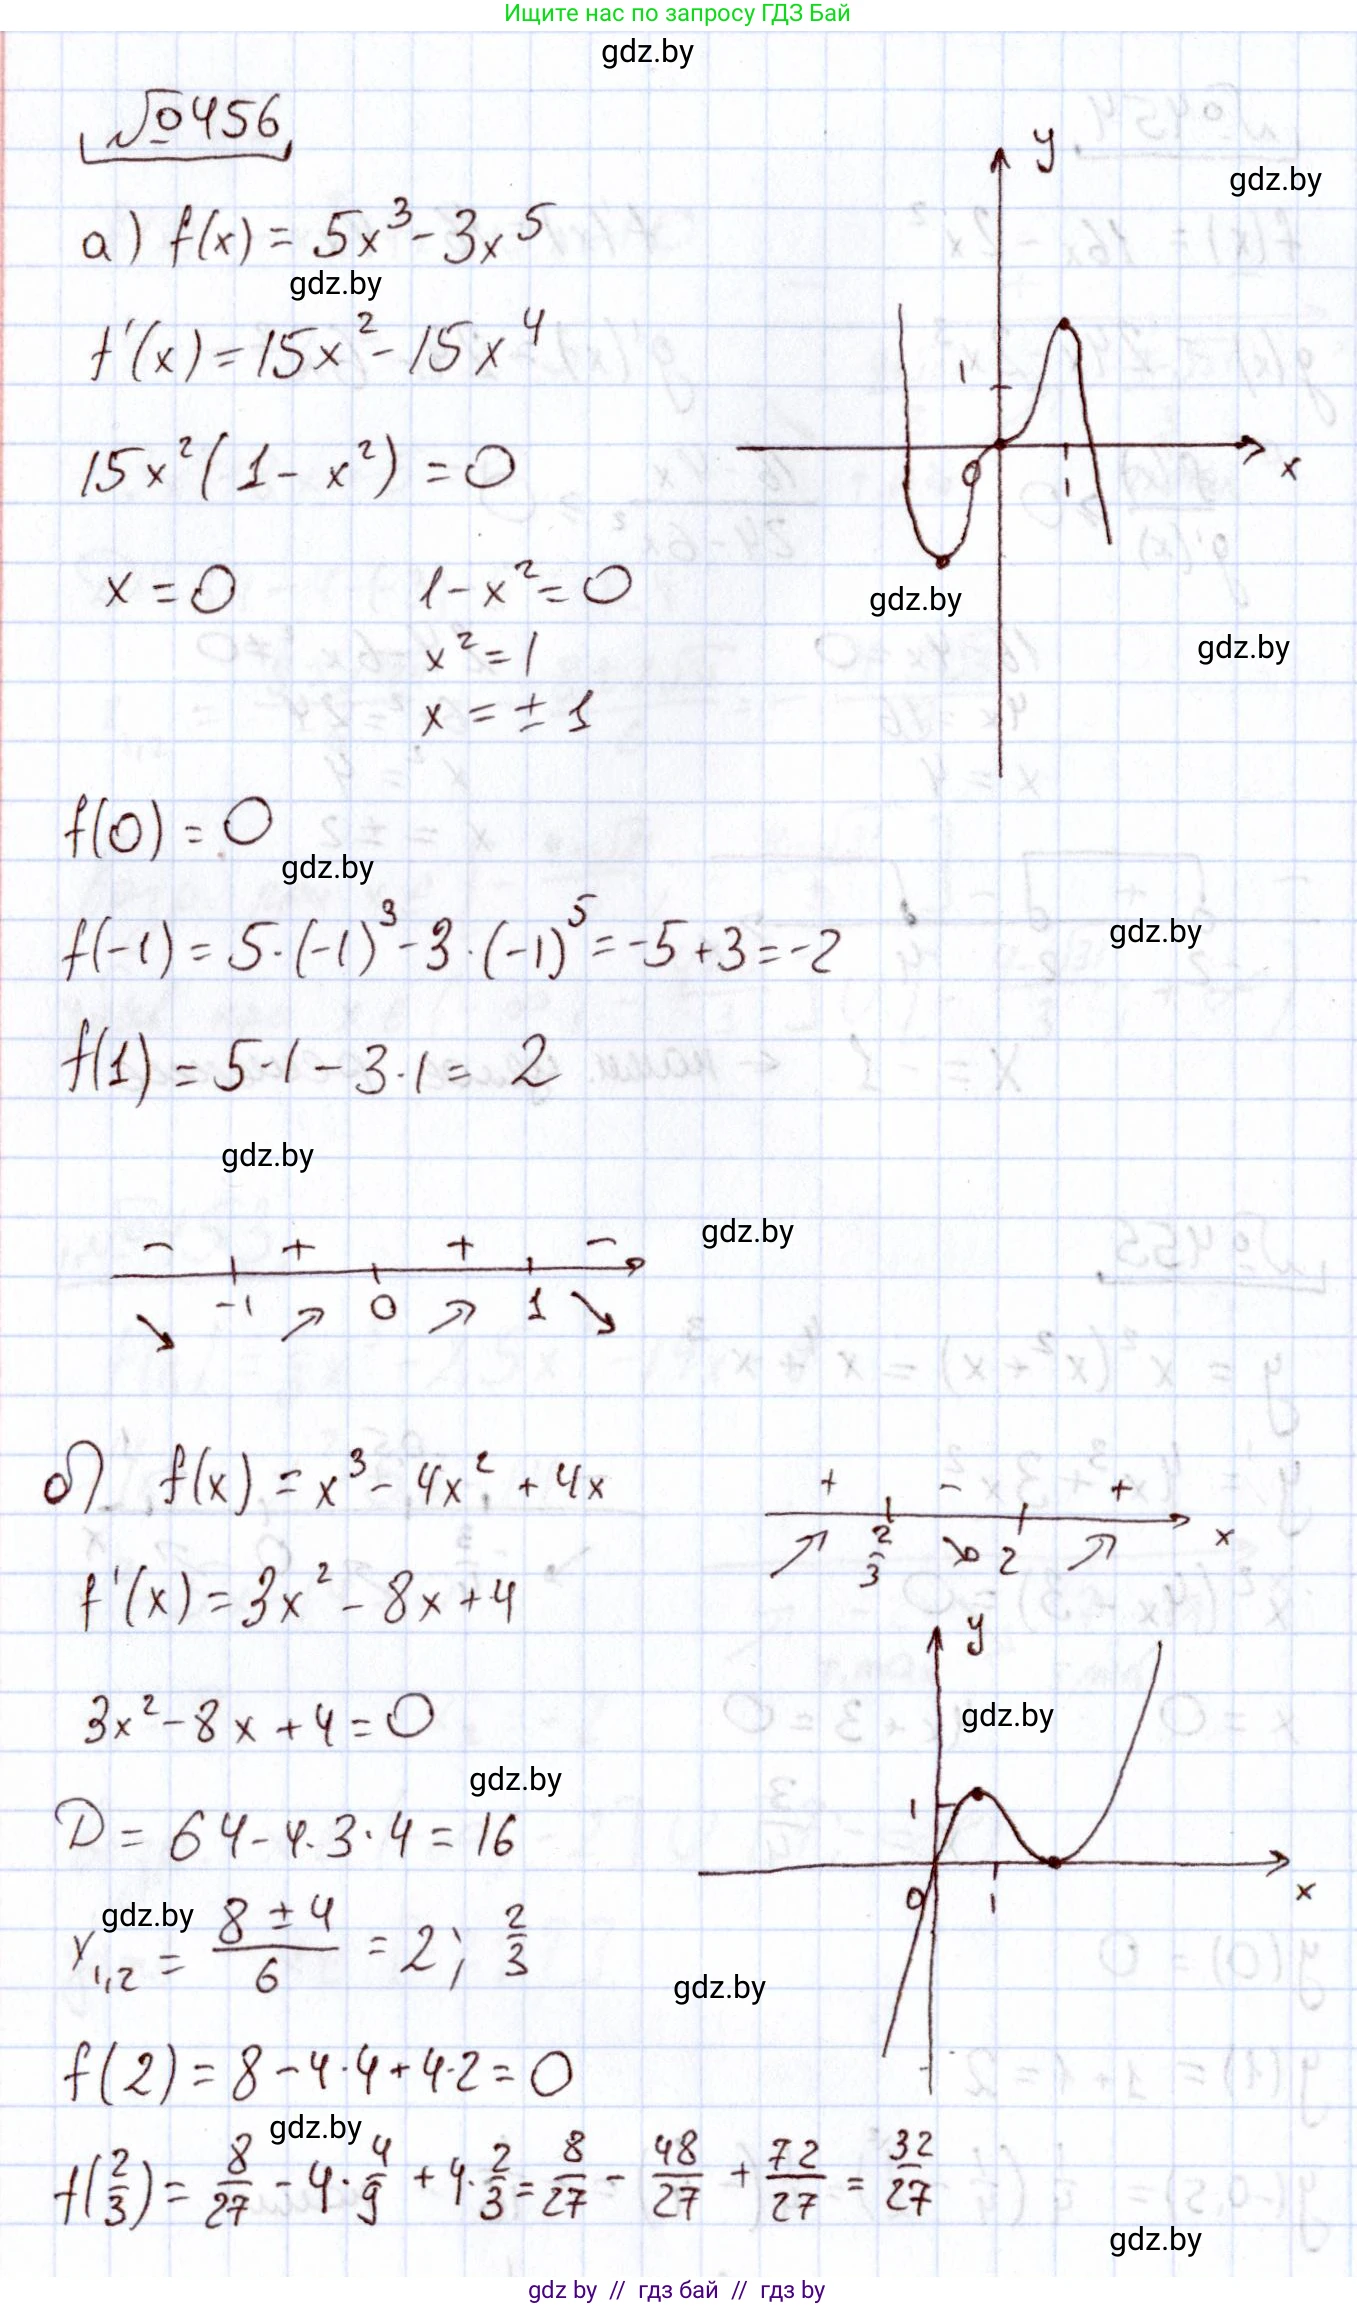 Ищите нас по запросу ГДЗ Бай
gdz.by
№456
y
gdz.by
а) f(x) = 5x³ - 3x⁵
gdz.by
f'(x) = 15x² - 15x⁴
1
15x²(1 - x²) = 0
0
1
x
x = 0
1 - x² = 0
gdz.by
x² = 1
gdz.by
x = ± 1
f(0) = 0
gdz.by
gdz.by
f(-1) = 5·(-1)³ - 3·(-1)⁵ = -5 + 3 = -2
f(1) = 5·1 - 3·1 = 2
gdz.by
gdz.by
- + + -
-1 0 1
б) f(x) = x³ - 4x² + 4x
+ - +
2/3 2 x
f'(x) = 3x² - 8x + 4
y
3x² - 8x + 4 = 0
gdz.by
gdz.by
1
D = 64 - 4·3·4 = 16
0
1
x
gdz.by
x₁,₂ = (8 ± 4)/6 = 2; 2/3
gdz.by
f(2) = 8 - 4·4 + 4·2 = 0
gdz.by
f(2/3) = 8/27 - 4·4/9 + 4·2/3 = 8/27 - 48/27 + 72/27 = 32/27
gdz.by
gdz.by // гдз бай // гдз by